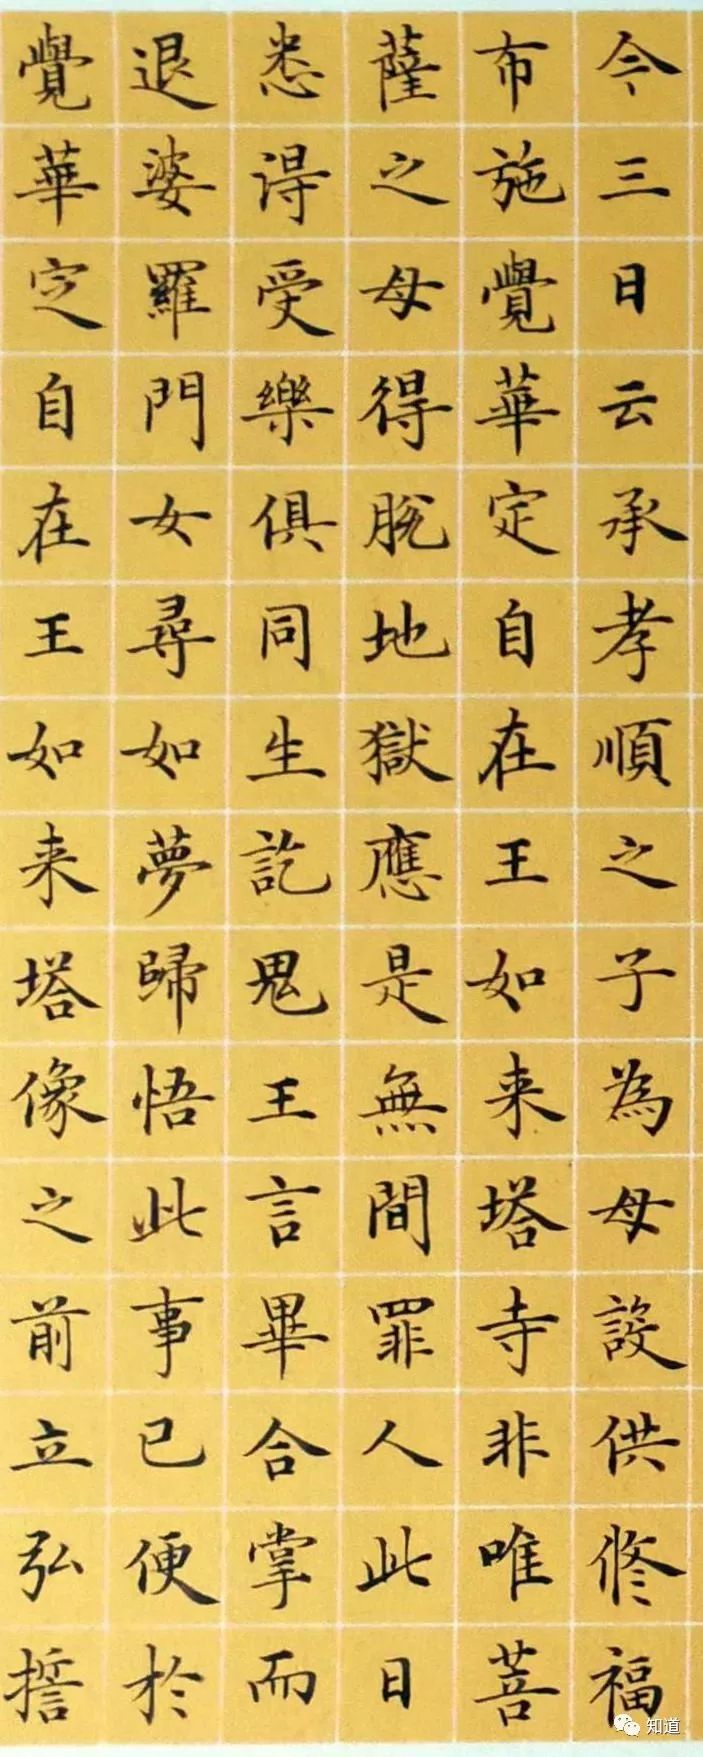 今三日云承孝順之子為母設供修福
布施覺華定自在王如来塔寺非唯菩
薩之母得脫地獄應是無間罪人此日
悉得受樂俱同生訖鬼王言畢合掌而
退婆羅門女尋如夢歸悟此事已便於
覺華定自在王如来塔像之前立弘誓
知道